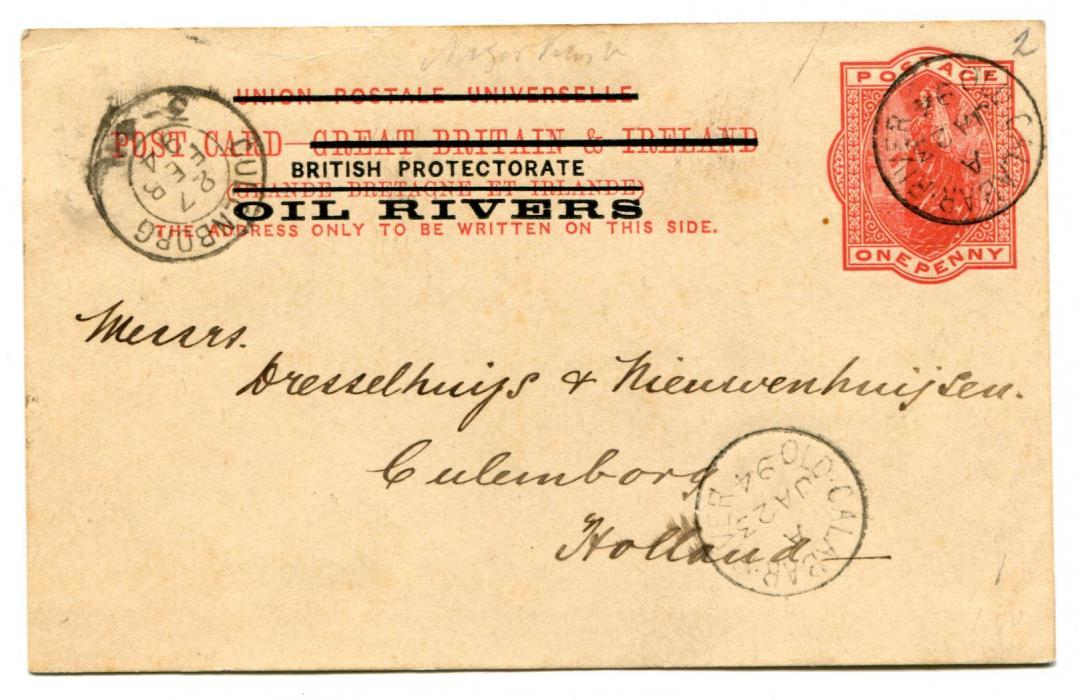 2
UNION POSTALE UNIVERSELLE
POST CARD GREAT BRITAIN & IRELAND
BRITISH PROTECTORATE
(GRANDE BRETAGNE ET IRLANDE)
OIL RIVERS
THE ADDRESS ONLY TO BE WRITTEN ON THIS SIDE.
POSTAGE
ONE PENNY
OLD CALABAR RIVER
A
94
CULEMBORG
27 FEB
94
Messrs.
Dresselhuijs & Nieuwenhuijsen.
Culemborg
Holland
OLD CALABAR RIVER
A
JA 23
94